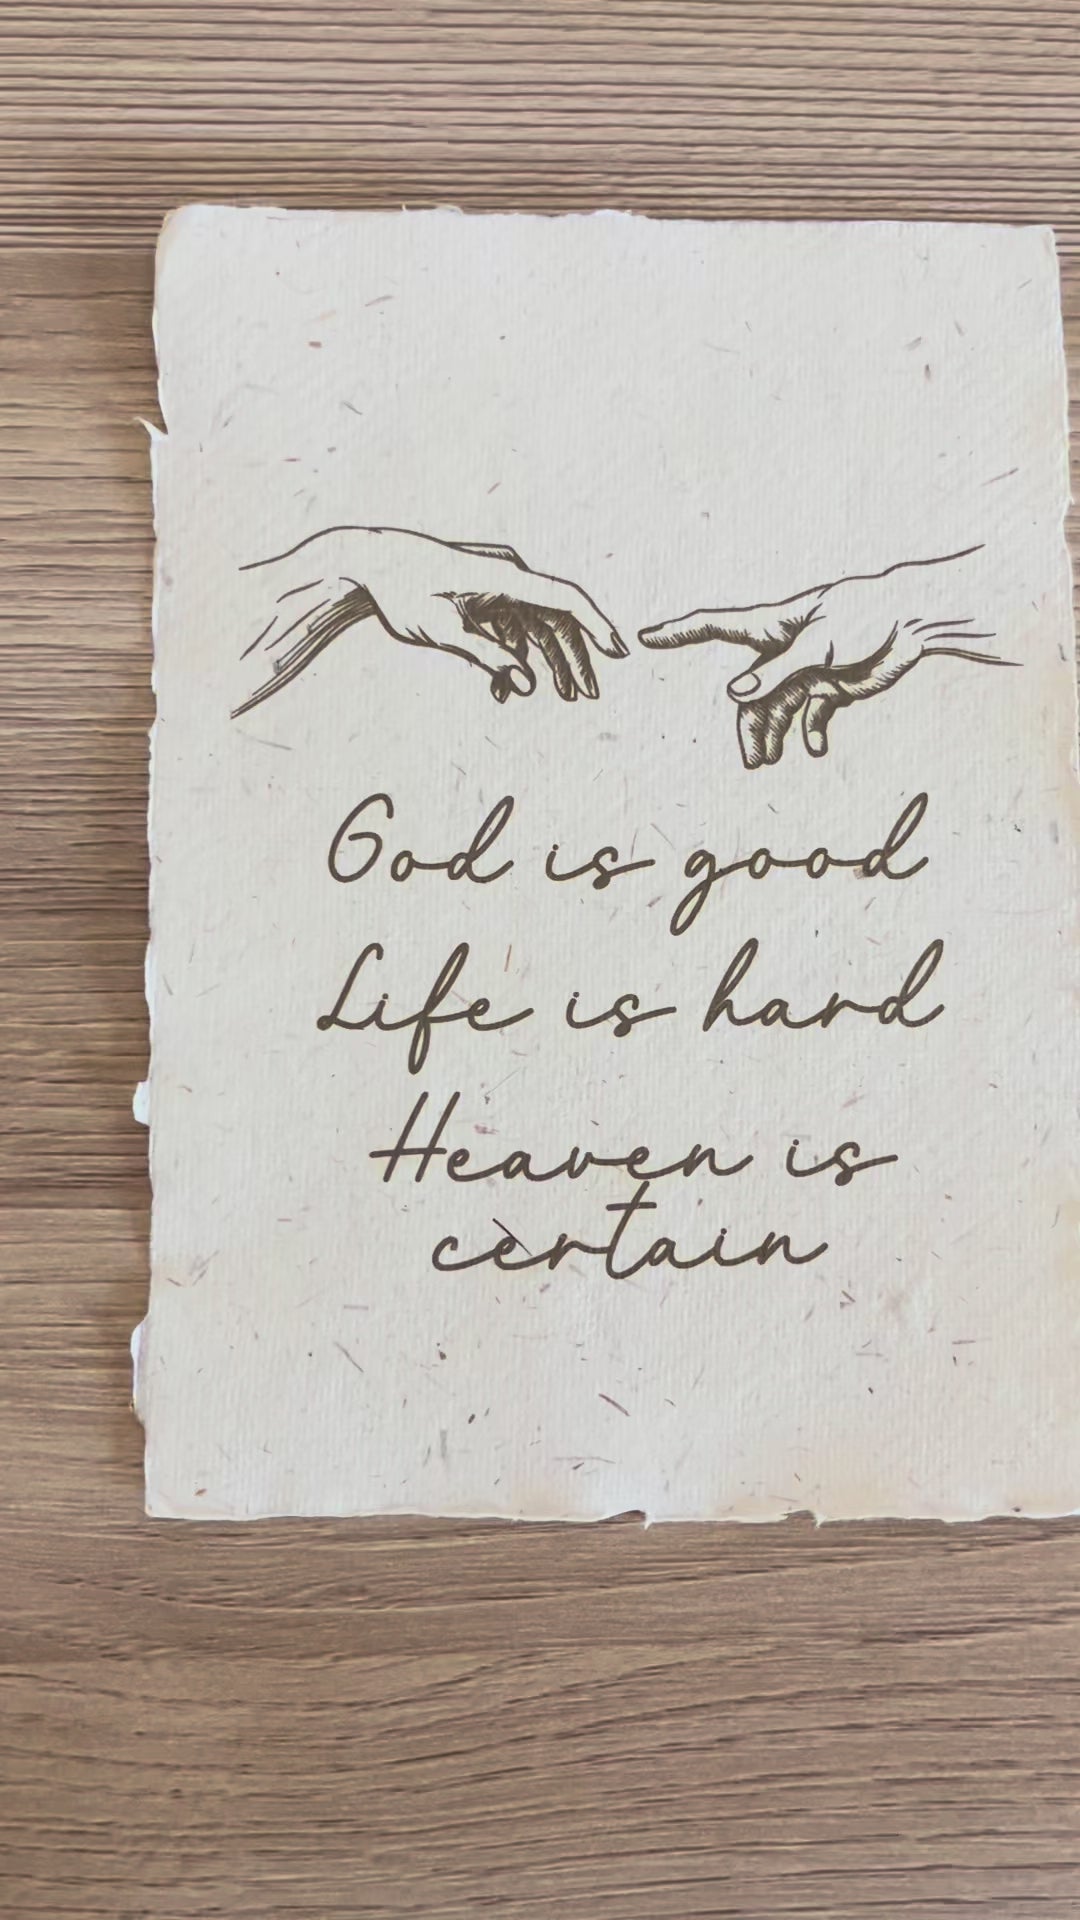 God is good
Life is hard
Heaven is
certain